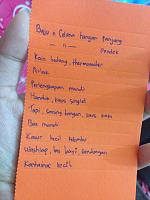 Baju n Celana tangan panjang
— " — Pendek
Kain bedong, thermometer
Perlak
Perlengkapan mandi
Handuk, kaos singlet
Topi, sarung tangan, kaos kaki
Bak mandi
Kasur kecil kelambu
Washlap, tas bayi, gendongan
Kontainer kecil